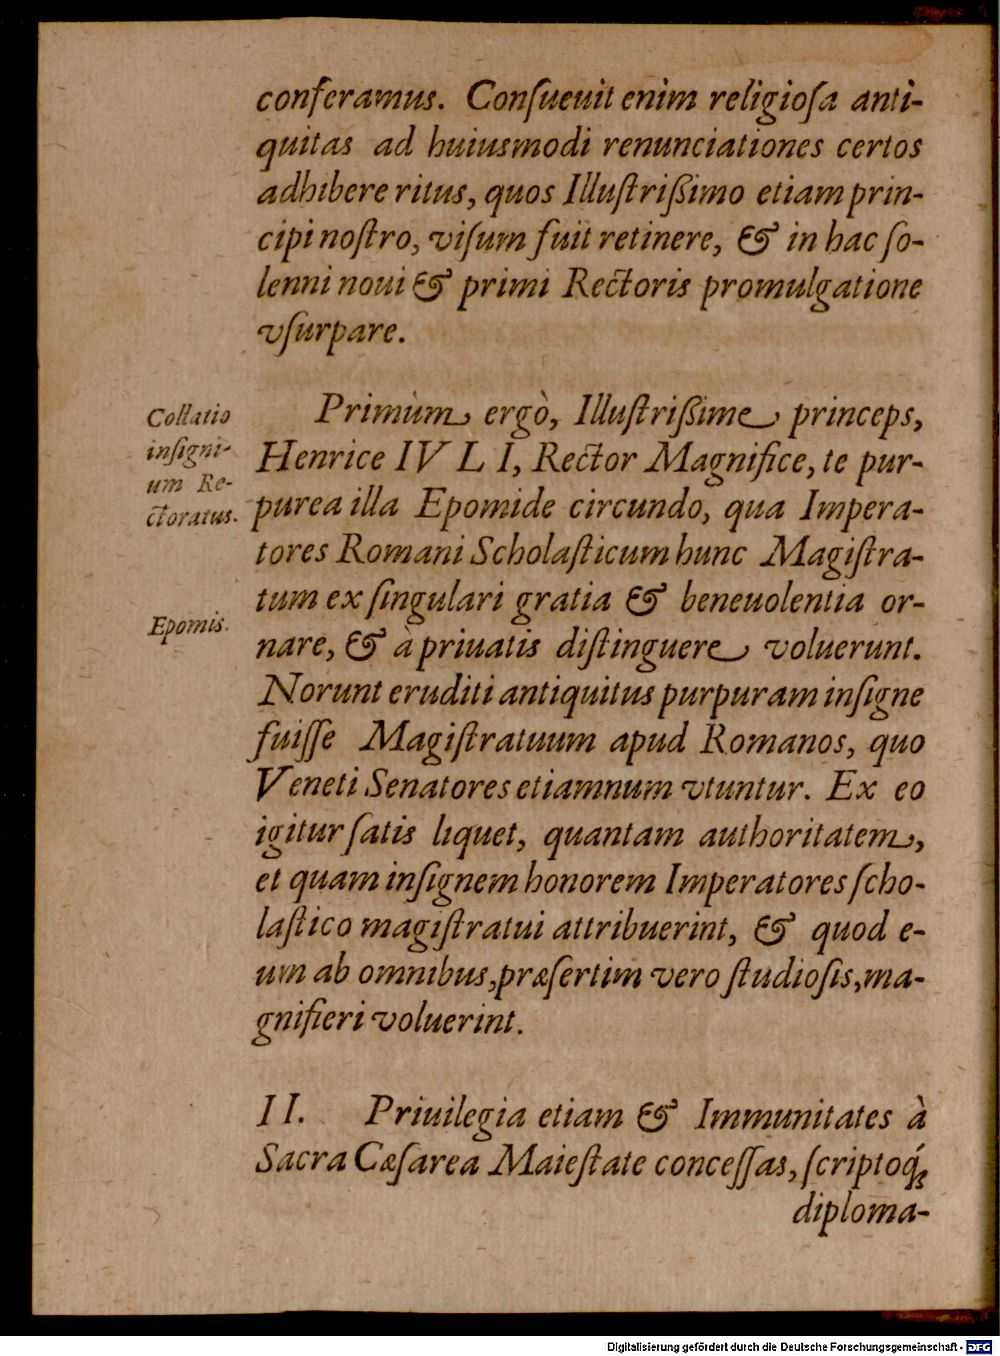 conferamus. Conſueuit enim religioſa anti-
quitas ad huiusmodi renunciationes certos
adhibere ritus, quos Illuſtriſsimo etiam prin-
cipi noſtro, viſum fuit retinere, & in hac ſo-
lenni noui & primi Rectoris promulgatione
vſurpare.
Primùm ergò, Illuſtriſsime princeps,
Henrice IV L I, Rector Magnifice, te pur-
purea illa Epomide circundo, qua Impera-
tores Romani Scholaſticum hunc Magiſtra-
tum ex ſingulari gratia & beneuolentia or-
nare, & à priuatis diſtinguere voluerunt.
Norunt eruditi antiquitus purpuram inſigne
fuiſſe Magiſtratuum apud Romanos, quo
Veneti Senatores etiamnum vtuntur. Ex eo
igitur ſatis liquet, quantam authoritatem,
et quam inſignem honorem Imperatores ſcho-
laſtico magiſtratui attribuerint, & quod e-
um ab omnibus, præſertim vero ſtudioſis, ma-
gnifieri voluerint.
Collatio
inſigni-
um Re-
ctoratus.
Epomis.
II. Priuilegia etiam & Immunitates à
Sacra Cæſarea Maieſtate conceſſas, ſcriptoq́;
diploma-
Digitalisierung gefördert durch die Deutsche Forschungsgemeinschaft - DFG